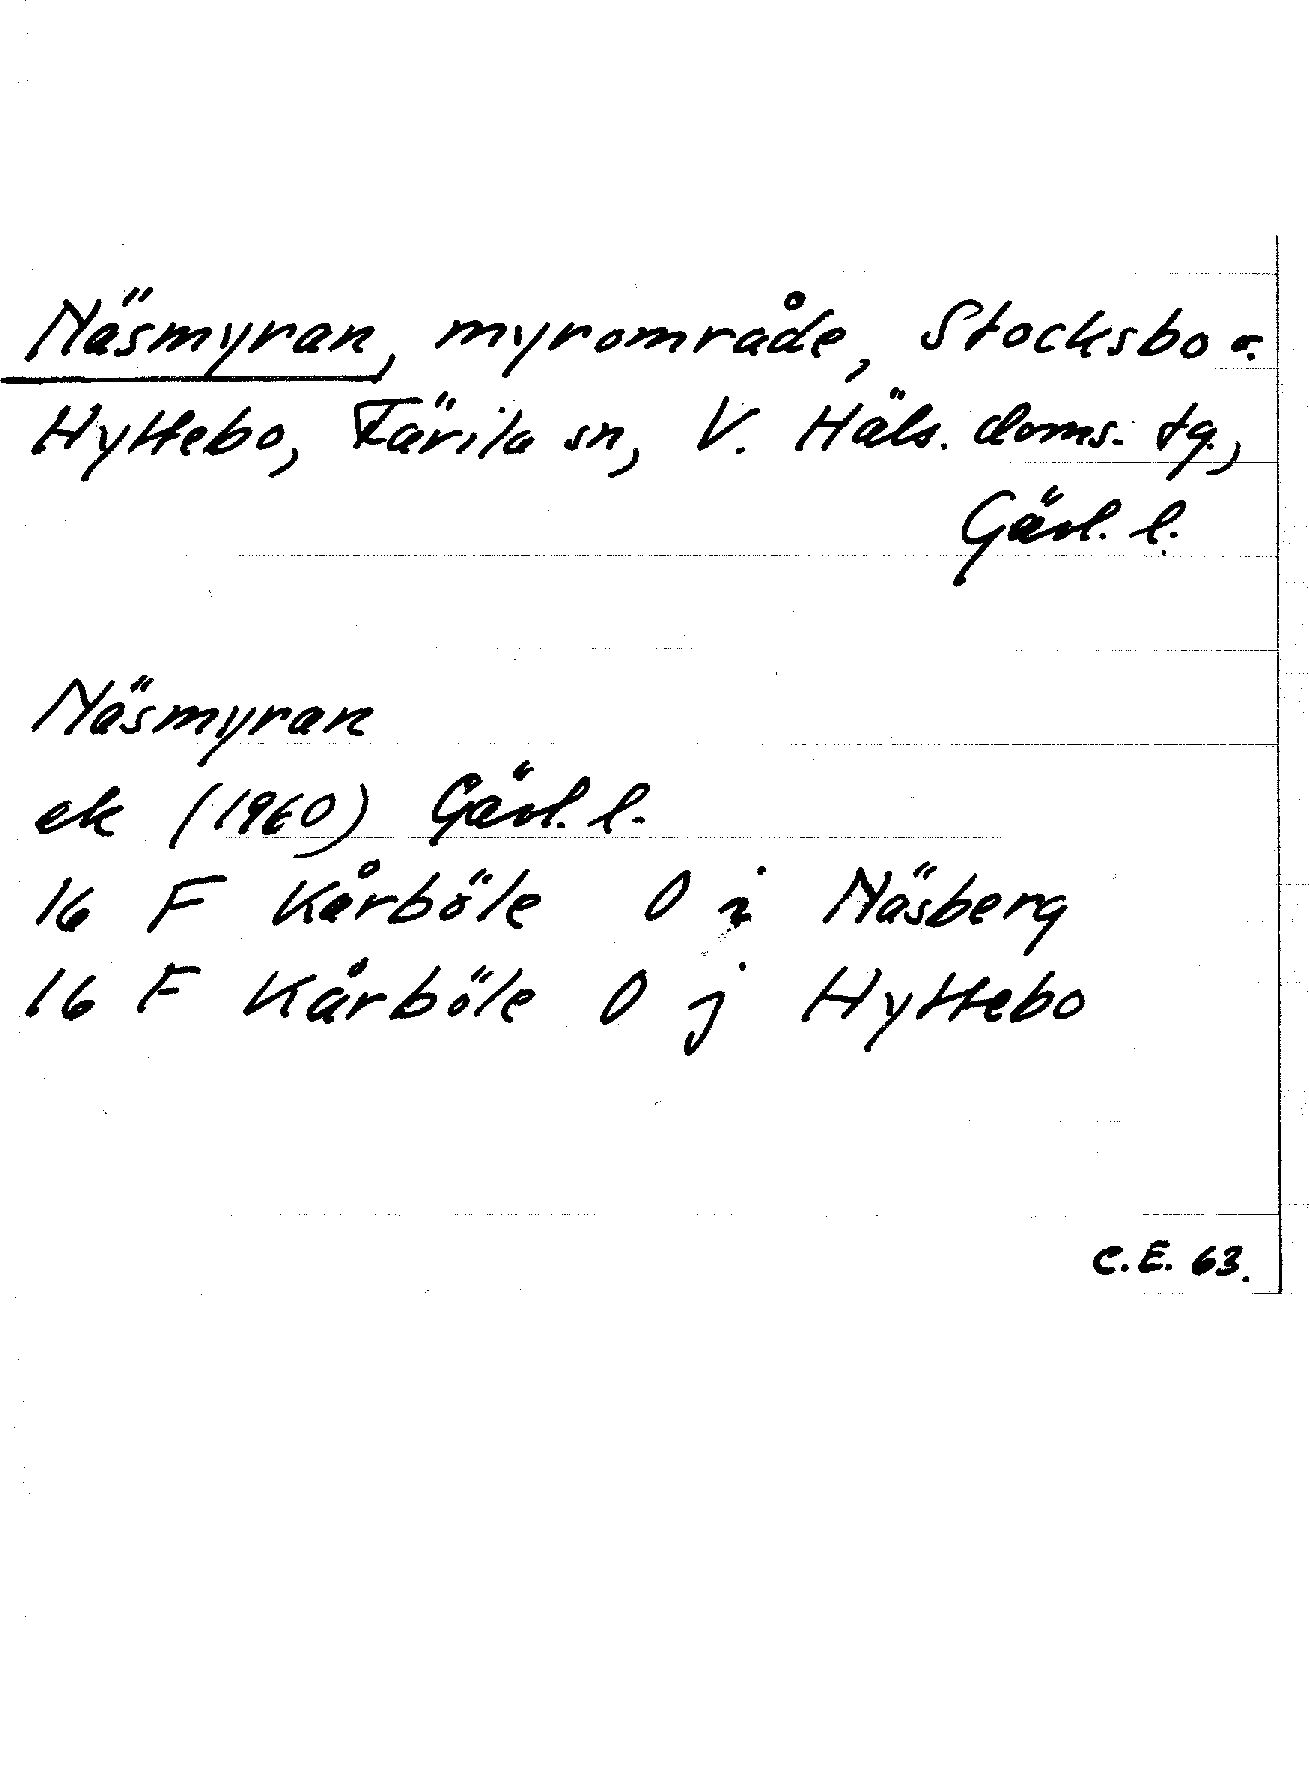 Näsmyran, myrområde, Stocksbo o.
Hyttebo, Färila sn, V. Häls. doms. tg.,
Gävl. l.
Näsmyran
ek (1960) Gävl. l.
16 F Kårböle 0 i Näsberg
16 F Kårböle 0 j Hyttebo
C.E. 63.